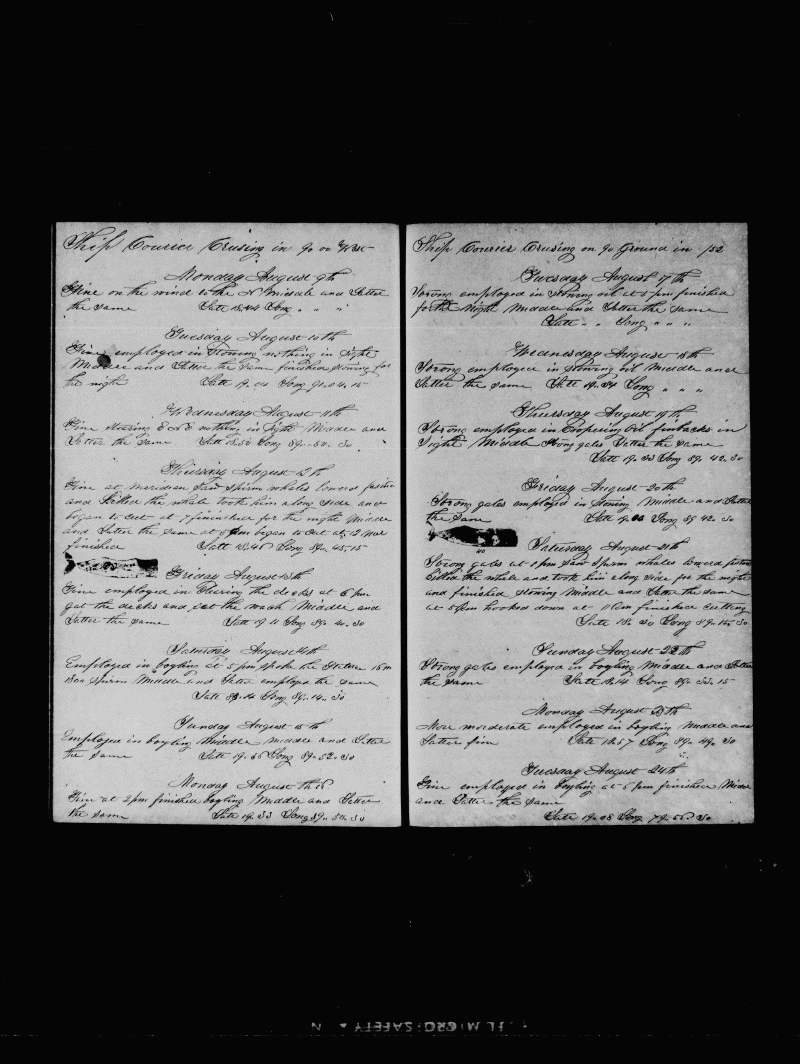 Ship Courier Crusing in 90 on West
Monday August 9th
Fine on the wind to the N Middle and Latter
the same Latt 18,,44 Long ,, ,, ,,
Tuesday August 10th
Fine employed in Stowing nothing in Sight
Middle and Latter the same finished stowing for
the night Latt 19..01 Long 90..04..15
Wednesday August 11th
Fine stearing nothing in Sight Middle and
Latter the same Latt 18.50 Long 89..50..30
Thursday August 12th
Fine at Meridian Saw Spirm whales lowerd
and killed the whale took him along side and
began to cut at 7 fininshed for the night Middle
and Latter the same at began to cut at 12 Mer
finished Latt 18,,46 Long 89..45..15
Friday August 13th
Fine employed in Clearing the decks at 6 pm
got the decks and the Middle and
Latter the same Latt 19 11 Long 89..40..30
Saturday August 14th
Employed in boyling at 5 pm spoke the
Spirm Middle and Latter employed the same
Latt Long 89..14..30
Sunday August 15th
Employed in boyling Middle middle and Latter
the same Latt 19..06 Long 89..52..30
Monday August th 16
Fine at 2 pm finished boyling Middle and Latter
the same Latt 19..33 Long 89..50..30
Ship Courier Crusing on 90 Ground in /52
Tuesday August 17th
Strong employed in Stowing oil at 5 pm finished
for the Night Middle and Latter the same
Latt ,, ,, Long ,, ,, ,,
Wednesday August 18th
Strong employed in stowing oil Middle and
Latter the same Latt 19..34 Long ,, ,, ,,
Thursday August 19th
Strong employed in Coopering Oil finbacks in
Sight Middle Strong gales Latter the same
Latt 19..33 Long 89..42..30
Friday August 20th
Strong gales employed in stowing Middle and Latter
the same Latt 19.. Long 89 42..30
40
Saturday August 21th
Strong gales at 1 pm saw Spirm whales lowerd
killed the whale and took him along side for the night
and finished stowing Middle and Latter the same
at 5 pm hooked down at 11 am finished cutting
Latt 18..30 Long 89..15..30
Sunday August 22th
Strong gales employed in boyling Middle and Latter
the same Latt 18,,14 Long 89..33..15
Monday August 23th
More morderate employed in boyling Middle and
Latter fine Latt 18.57 Long 89..49..30
Tuesday August 24th
Fine employed in boyling at 6 pm finished Middle
and Latter the same
Latt 19..08 Long 79..56..30